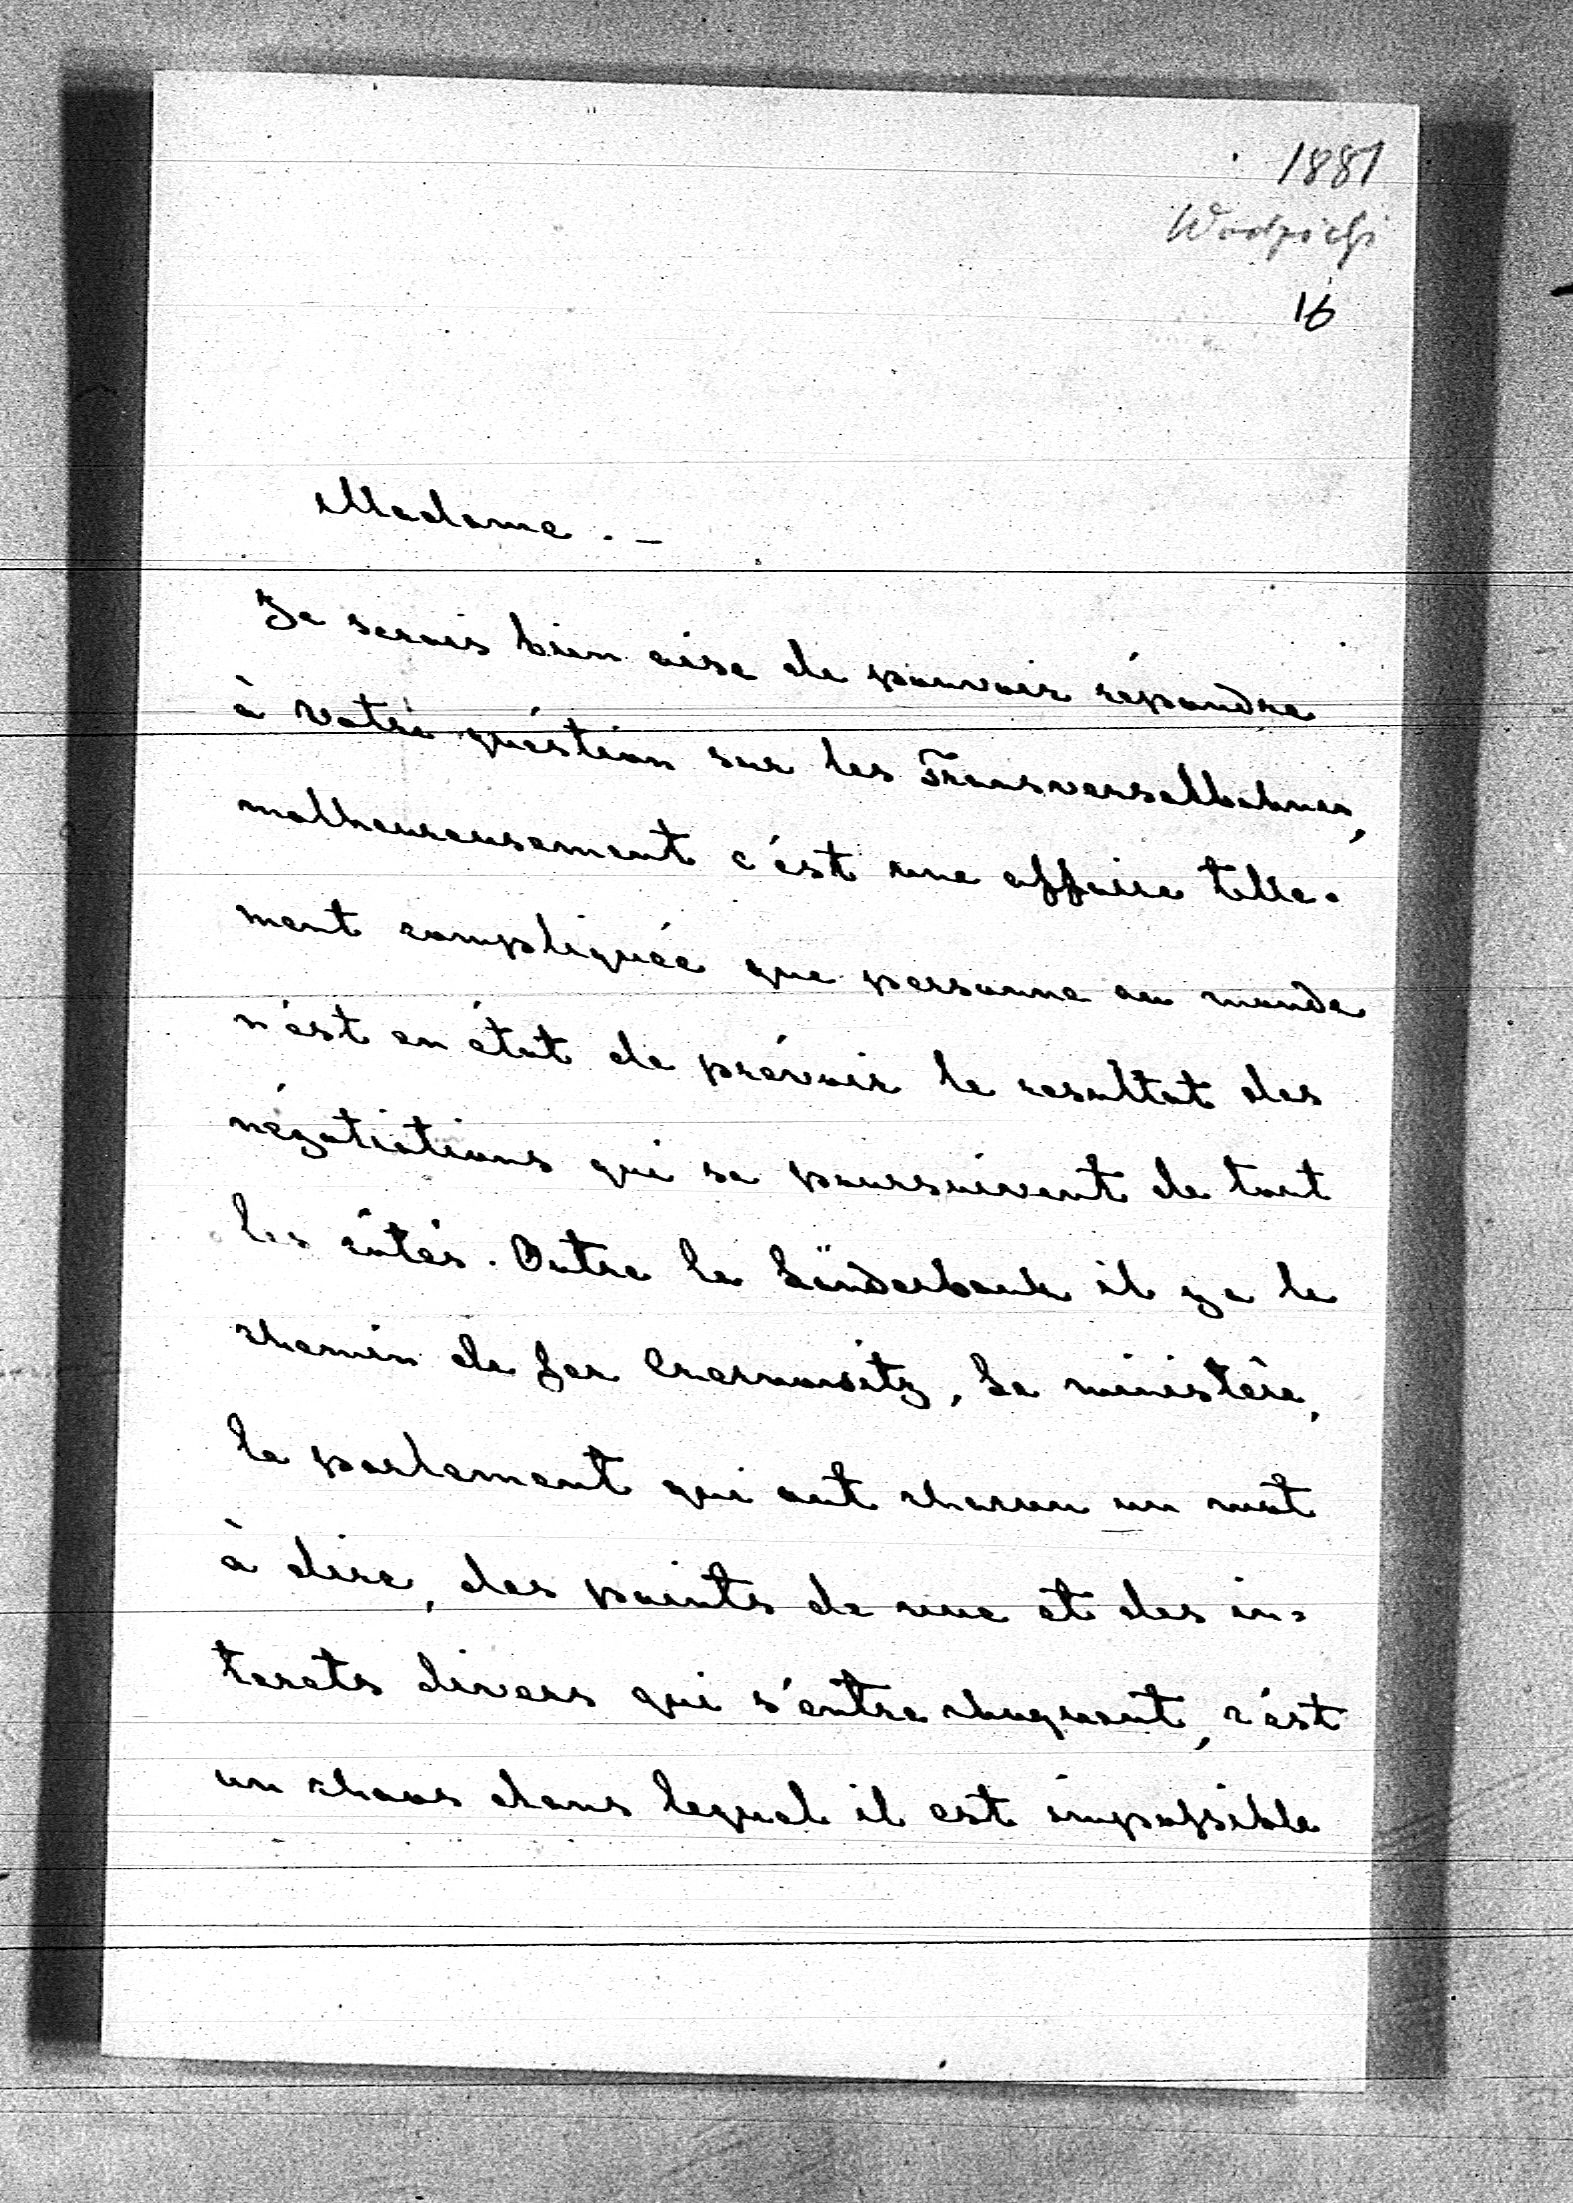 1881
Wodzicki
16
Madame. -
Je serais bien aise de pouvoir répondre
à votre quéstion sur les Transversalbahnen,
malheureusement c'ést une affaire telle-
ment compliquée que personne au monde
n'ést en état de prévoir le resultat des
négotiations qui se poursuivent de tout
les côtés. Outre la Länderbank il y a le
chemin de fer Czernowitz, le ministère,
le parlement qui ont chacun un mot
à dire, des points de vue et des in=
terets divers qui s'entre choquent, c'ést
un chaos dans lequel il est impossible